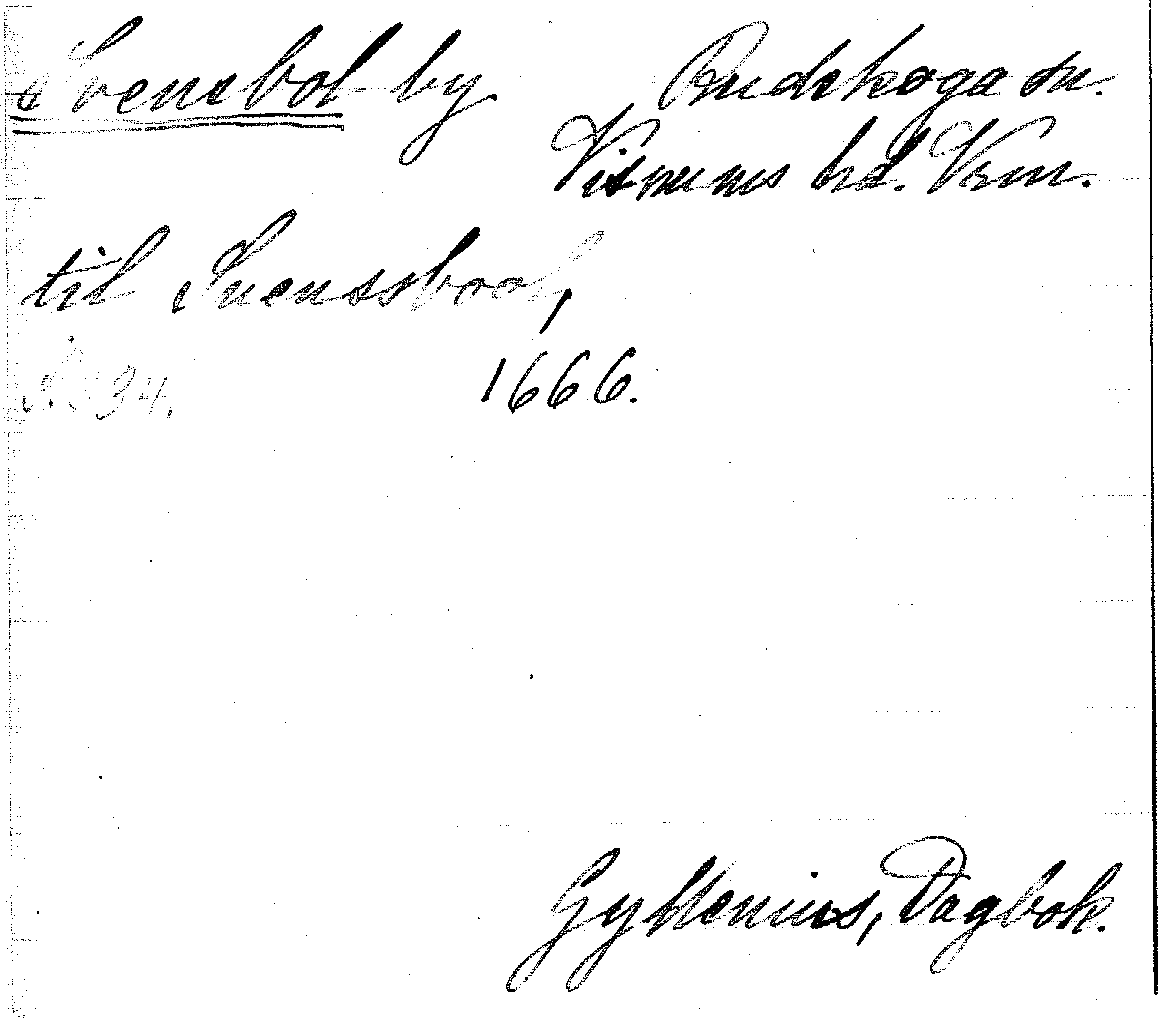 Svensbol by Rudskoga sn.
Visnums hd. Vrm.
til Svenssbool,
S. 334. 1666.
Gyllenius, Dagbok.